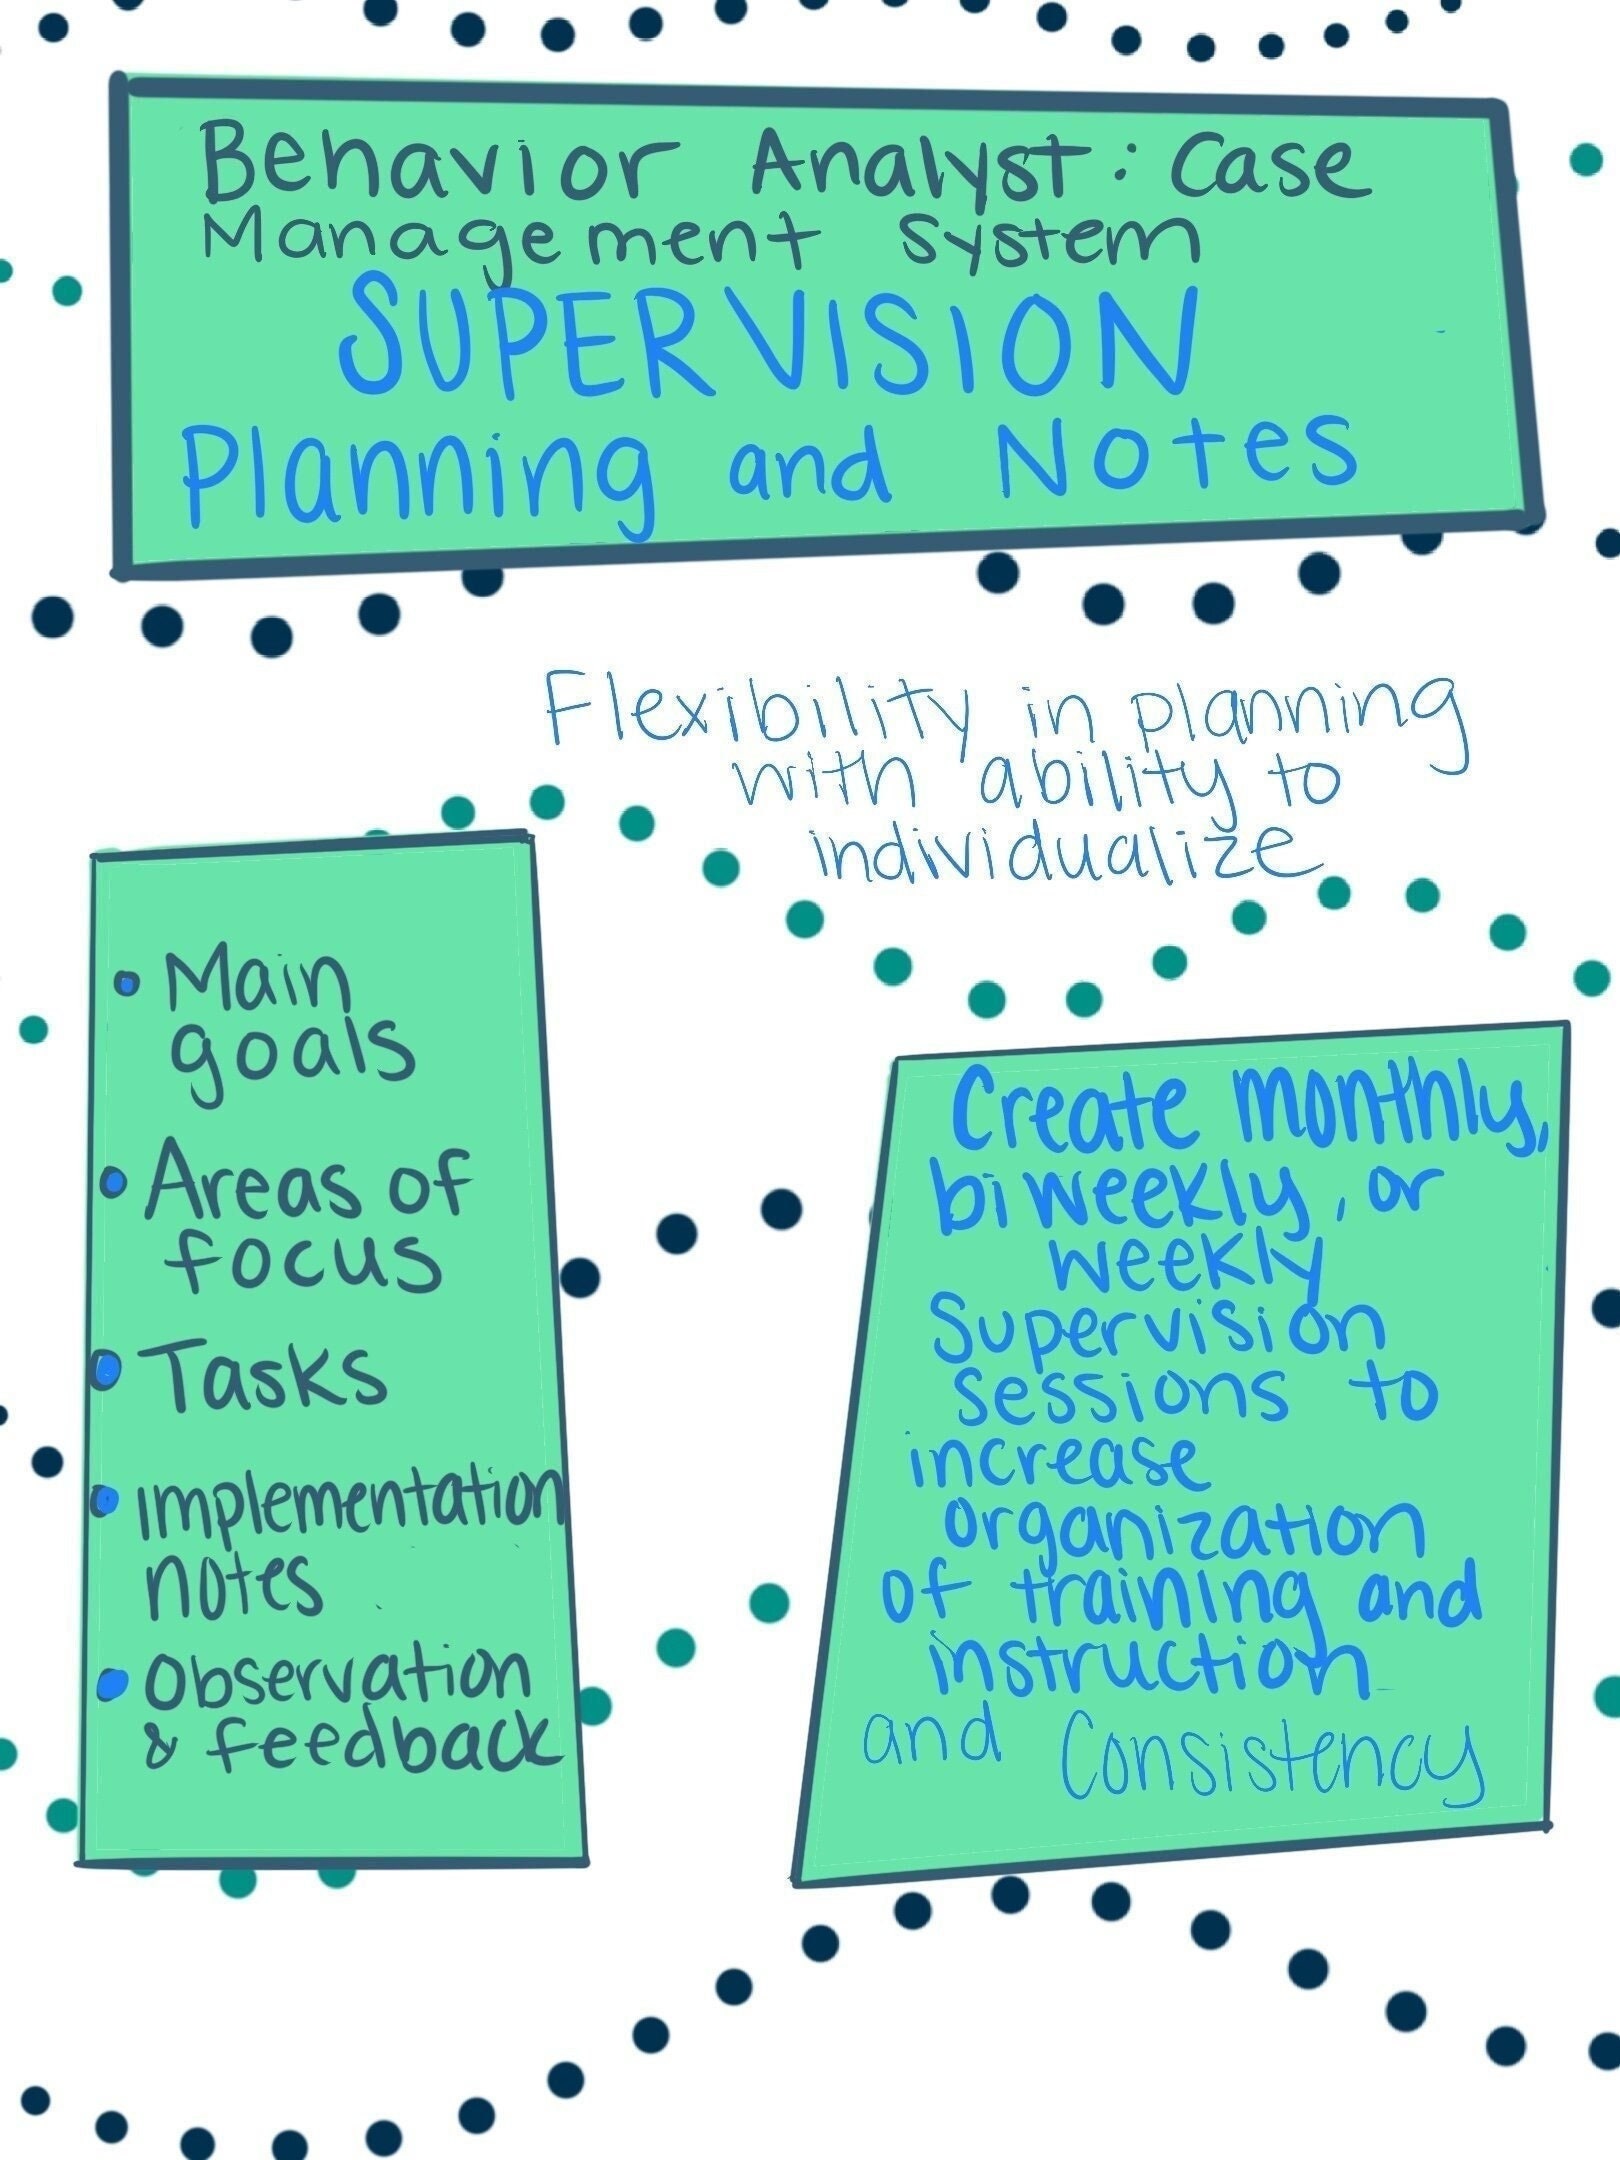 Behavior Analyst: Case
Management System
SUPERVISION
Planning and Notes
Flexibility in planning
with ability to
individualize
• Main
goals
• Areas of
focus
• Tasks
• Implementation
notes
• Observation
& feedback
Create monthly,
biweekly, or
weekly
Supervision
sessions to
increase
organization
of training and
instruction
and Consistency